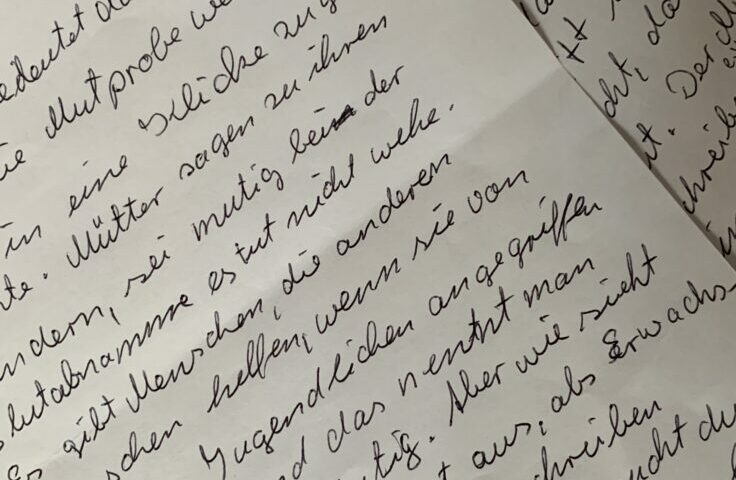 bedeutet
die Mutprobe
in eine Clique zu
Mütter sagen zu ihren
Kindern, sei mutig bei der
Blutabnamme es tut nicht wehe.
Es gibt Menschen, die anderen
Menschen helfen, wenn sie von
Jugendlichen angegriffen
und das nentnt man
mutig. Aber wie sieht
es aus, als Erwachs-
schreiben
Der
schreiben